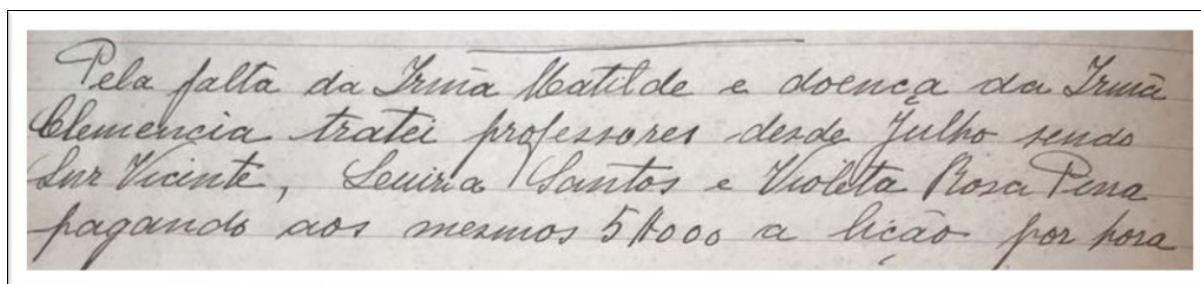 Pela falta da Irmã Matilde e doença da Irmã
Clemencia tratei professores desde Julho sendo
Vicente, Santos e Violeta Rosa Pena
pagando aos mesmos 5$000 a lição por hora